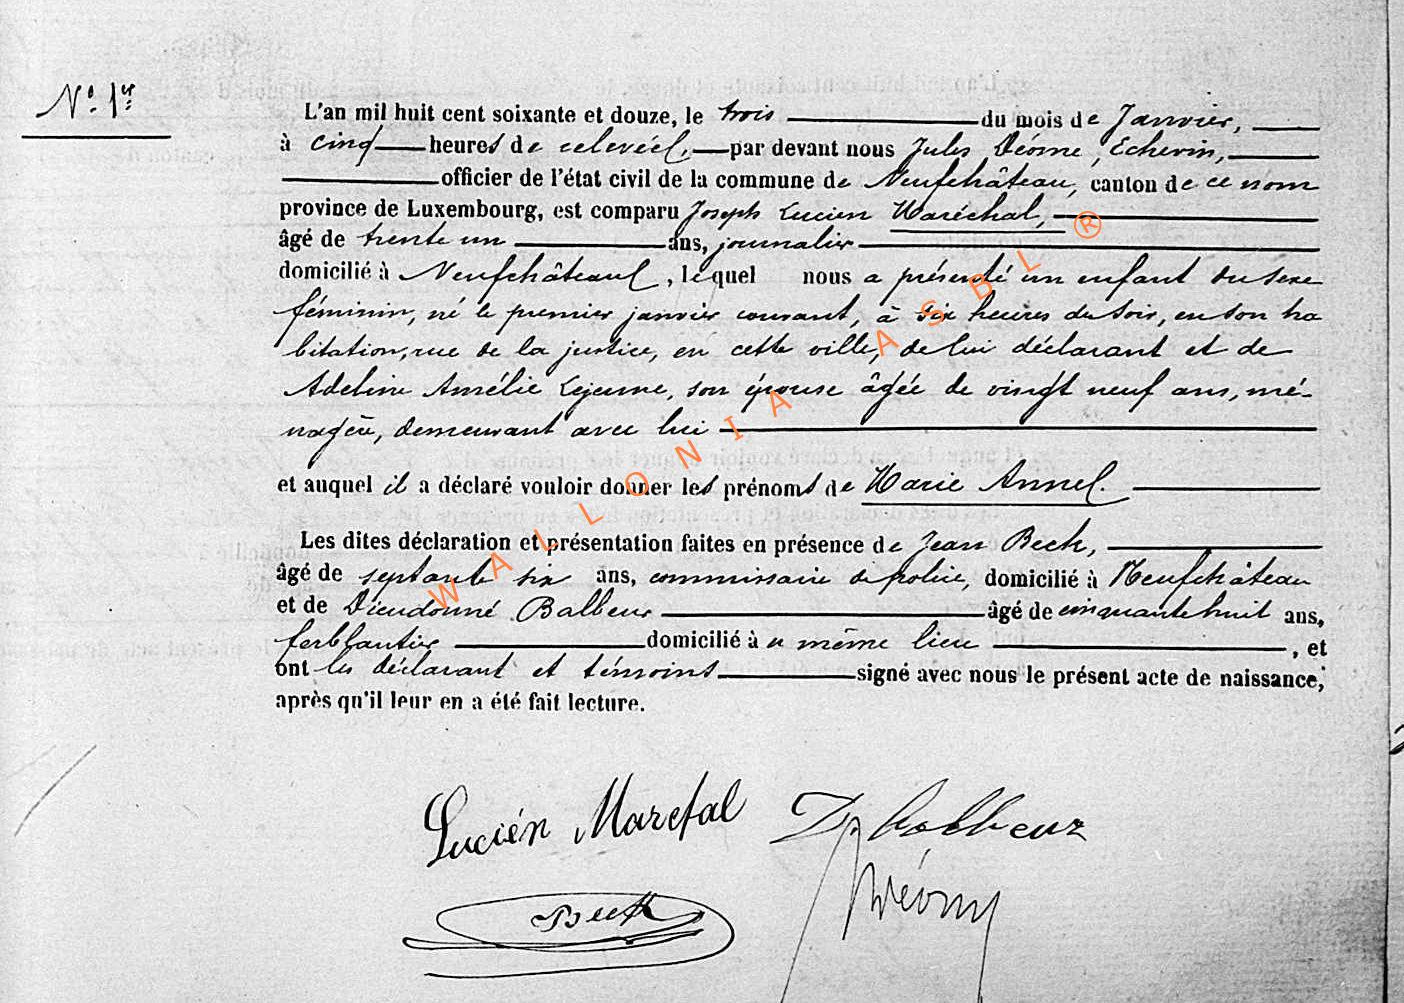 N° 1er
L'an mil huit cent soixante et douze, le trois du mois de Janvier,
à cinq heures de relevée, par devant nous Jules Déome, Echevin,
officier de l'état civil de la commune de Neufchâteau, canton de ce nom
province de Luxembourg, est comparu Joseph Lucien Maréchal,
âgé de trente un ans, journalier
domicilié à Neufchâteau, lequel nous a présenté un enfant du sexe
féminin, né le premier janvier courant, à six heures du soir, en son ha
bitation, rue de la justice, en cette ville, de lui déclarant et de
Adeline Amélie Lejeune, son épouse âgée de vingt neuf ans, mé-
nagère, demeurant avec lui
et auquel il a déclaré vouloir donner les prénoms de Marie Anne.
Les dites déclaration et présentation faites en présence de Jean Beck,
âgé de septante six ans, commissaire de police, domicilié à Neufchâteau
et de Dieudonné Balbeur âgé de cinquante huit ans,
ferblantier domicilié à u même lieu , et
ont les déclarant et témoins signé avec nous le présent acte de naissance,
après qu'il leur en a été fait lecture.
Lucién Marchal
Beck
Déome
WALLONIA ASBL ®